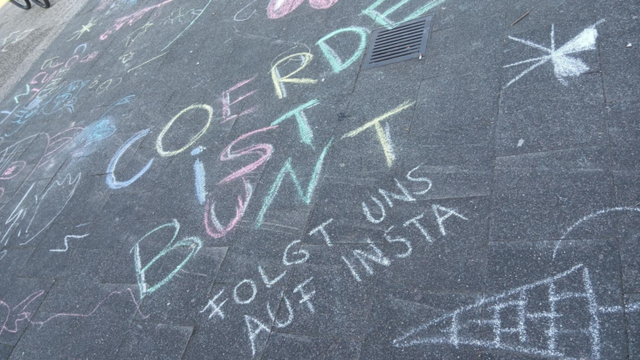 COERDE
iST
BUNT
FOLGT UNS
AUF INSTA